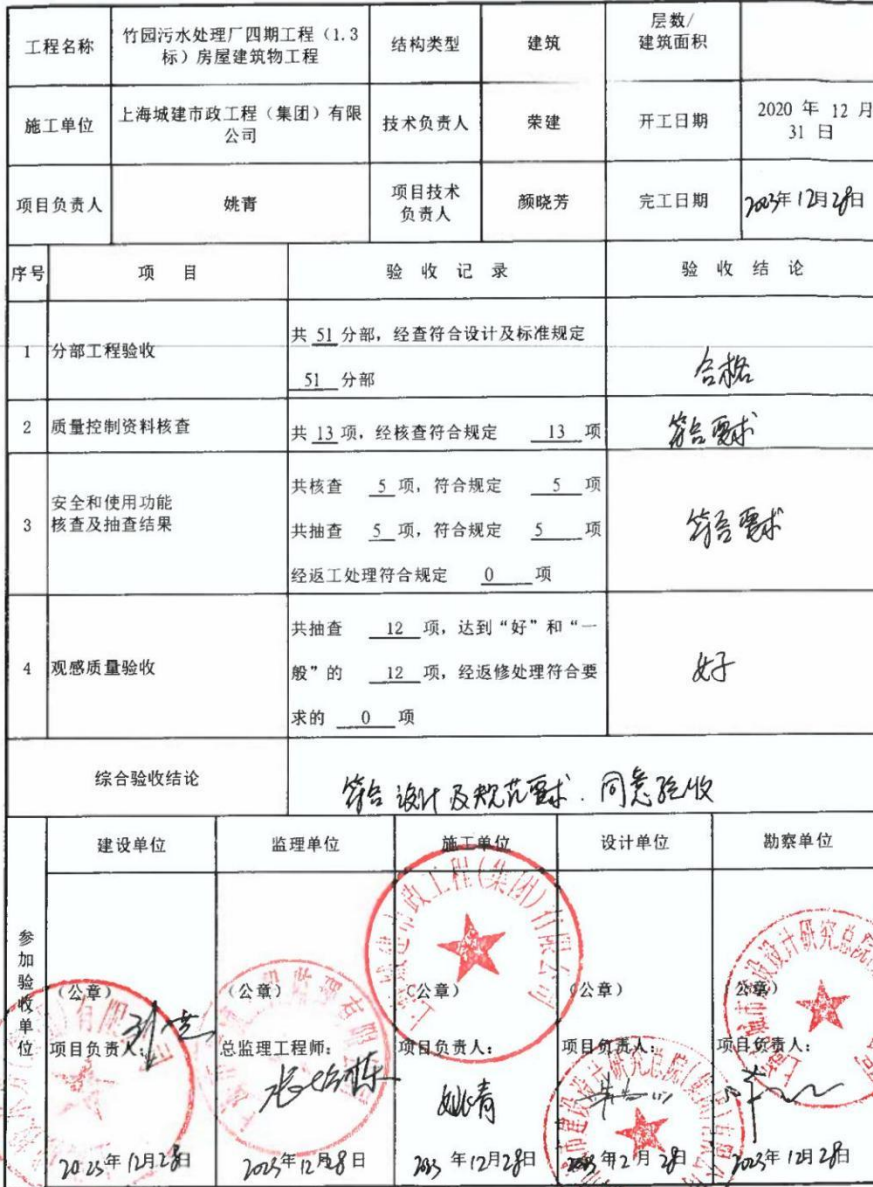 工程名称 竹园污水处理厂四期工程（1.3
标）房屋建筑物工程 结构类型 建筑 层数/
建筑面积
施工单位 上海城建市政工程（集团）有限
公司 技术负责人 荣建 开工日期 2020 年 12 月
31 日
项目负责人 姚青 项目技术
负责人 颜晓芳 完工日期 2023年12月28日
序号 项 目 验 收 记 录 验 收 结 论
1 分部工程验收 共 51 分部，经查符合设计及标准规定
51 分部 合格
2 质量控制资料核查 共 13 项，经核查符合规定 13 项 符合要求
3 安全和使用功能
核查及抽查结果 共核查 5 项，符合规定 5 项
共抽查 5 项，符合规定 5 项
经返工处理符合规定 0 项 符合要求
4 观感质量验收 共抽查 12 项，达到“好”和“一
般”的 12 项，经返修处理符合要
求的 0 项 好
综合验收结论 符合设计及规范要求．同意验收
参加验收单位 建设单位 监理单位 施工单位 设计单位 勘察单位
（公章） （公章） （公章） （公章） （公章）
项目负责人： 总监理工程师： 项目负责人： 项目负责人： 项目负责人：
姚青
2023年12月28日 2023年12月28日 2023年12月28日 2023年12月28日 2023年12月28日